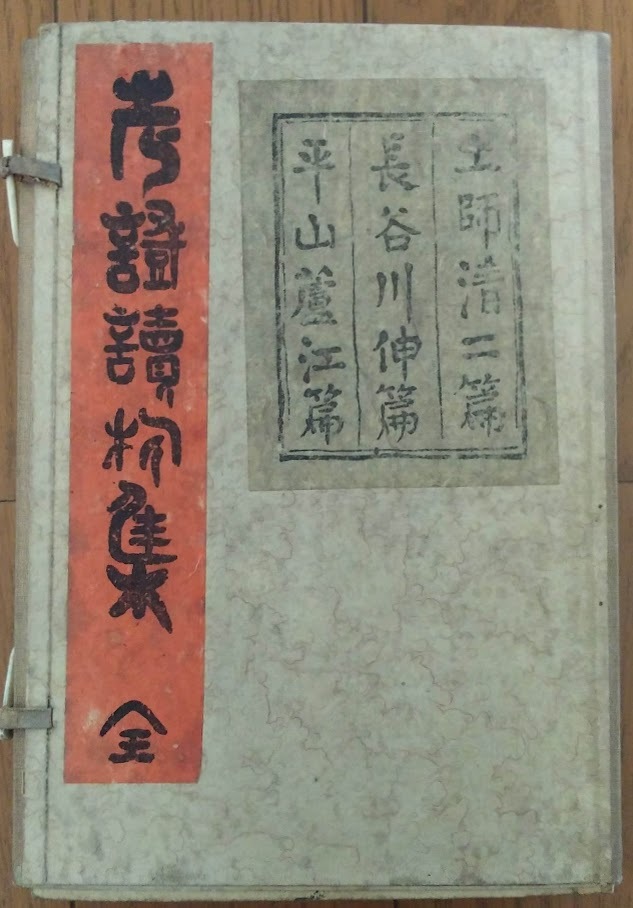 土師清二篇
長谷川伸篇
平山蘆江篇
考證讀物集 全